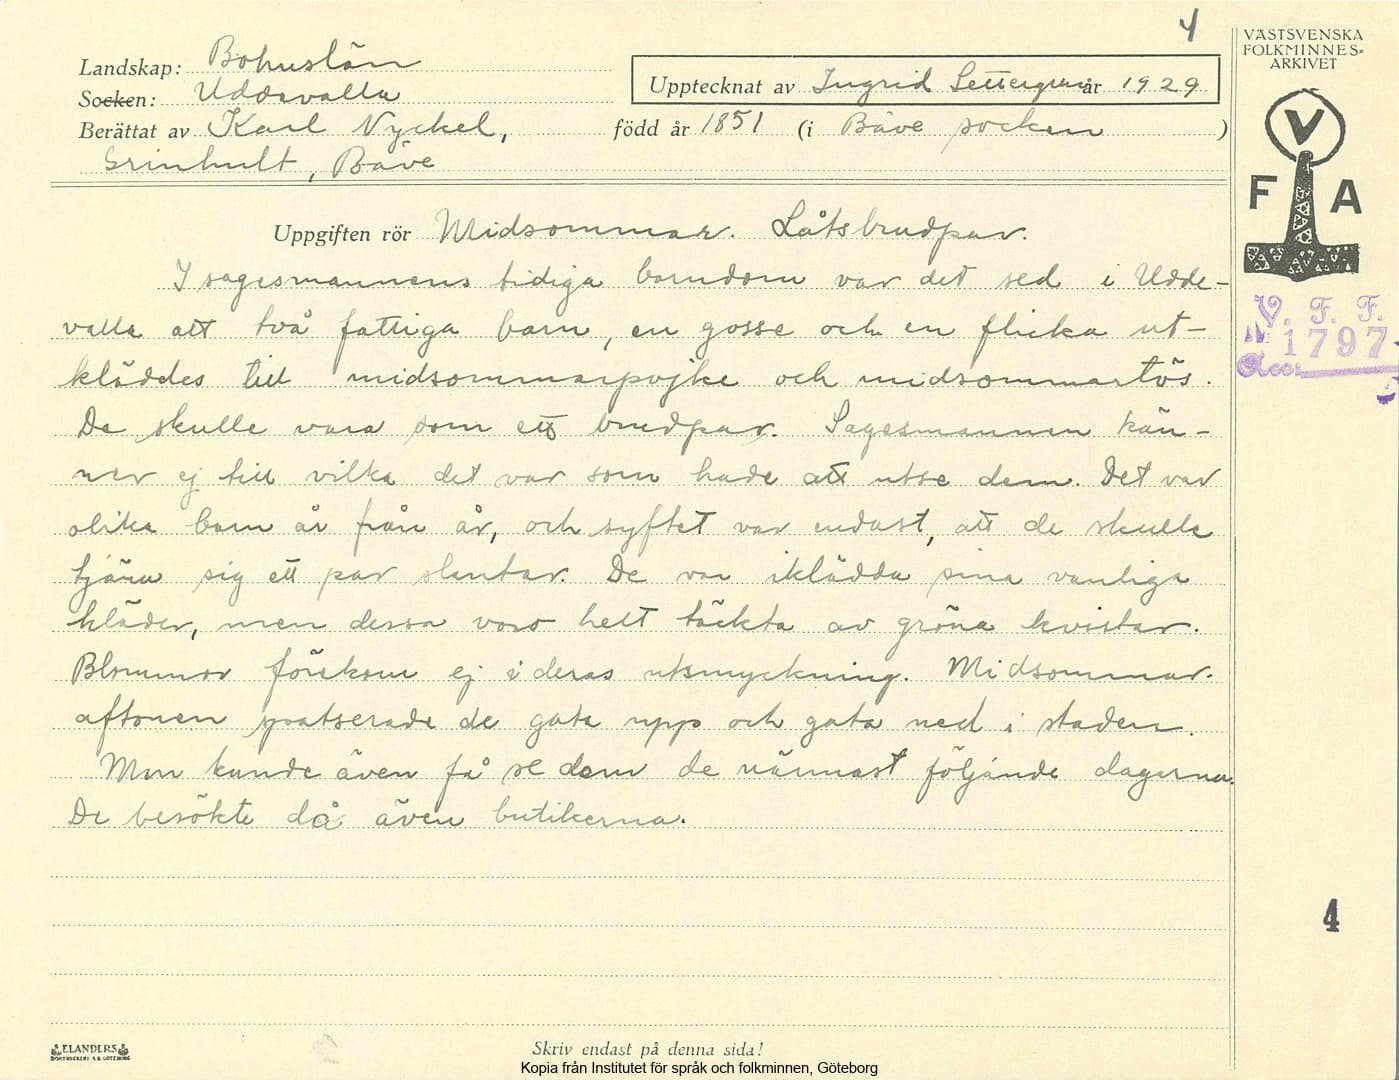 4
VÄSTSVENSKA
FOLKMINNES=
ARKIVET
Landskap: Bohuslän
Socken: Uddevalla
Upptecknat av Ingrid Settergren år 1929
Berättat av Karl Nyckel, född år 1851 (i Bäve socken)
Grinhult, Bäve
V
F A
Uppgiften rör Midsommar. Låtsbrudpar.
I sagesmannens tidiga barndom var det sed i Udde-
valla att två fattiga barn, en gosse och en flicka ut-
kläddes till midsommarpojke och midsommartös.
De skulle vara som ett brudpar. Sagesmannen kän-
ner ej till vilka det var som hade att utse dem. Det var
olika barn år från år, och syftet var endast, att de skulle
tjäna sig ett par slantar. De var iklädda sina vanliga
kläder, men dessa voro helt täckta av gröna kvistar.
Blommor förekom ej i deras utsmyckning. Midsommar-
aftonen patserade de gata upp och gata ned i staden.
Man kunde även få se dem de närmast följande dagarna.
De besökte då även butikerna.
V. F. F.
1797
Acc:
4
ELANDERS
BOKTRYCKERI A.B. GÖTEBORG
Skriv endast på denna sida!
Kopia från Institutet för språk och folkminnen, Göteborg